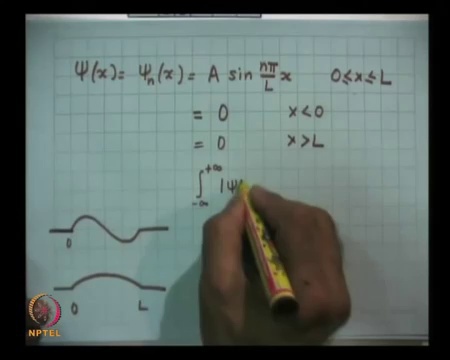 Ψ(x) = Ψn(x) = A sin nπ/L x    0≤x≤L
= 0    x<0
= 0    x>L
∫−∞ +∞ |Ψ(
0
0    L
NPTEL